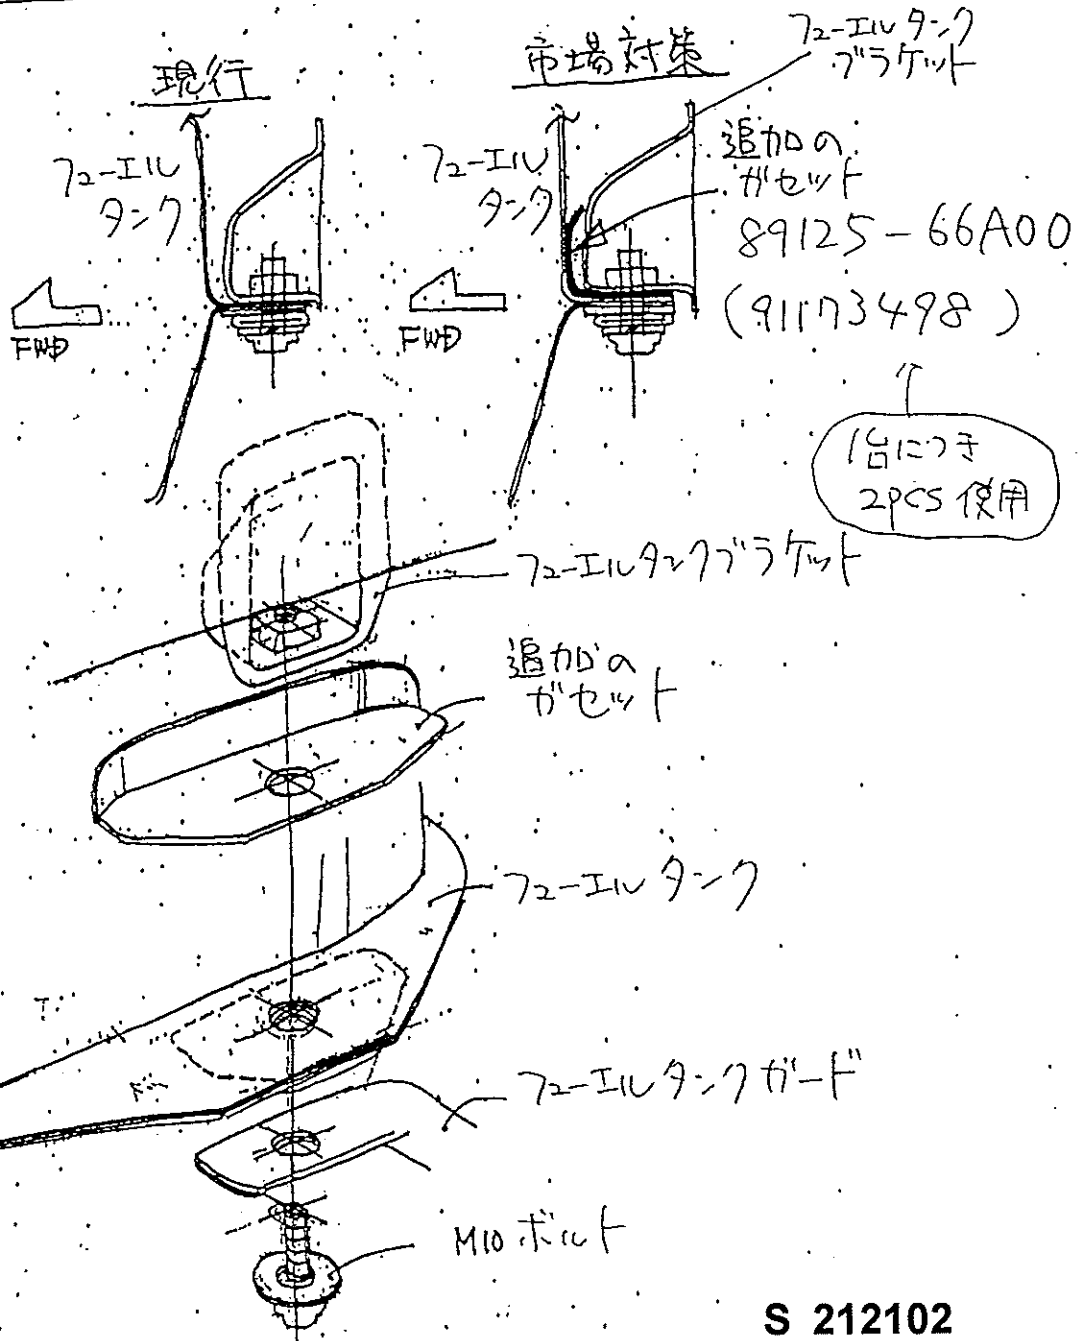 現行
フューエル
タンク
FWD
市場対策
フューエルタンク
ブラケット
フューエル
タンク
追加の
ガセット
89125-66A00
(91173498)
FWD
1台につき
2pcs 使用
フューエルタンクブラケット
追加の
ガセット
フューエルタンク
フューエルタンクガード
M10 ボルト
S 212102